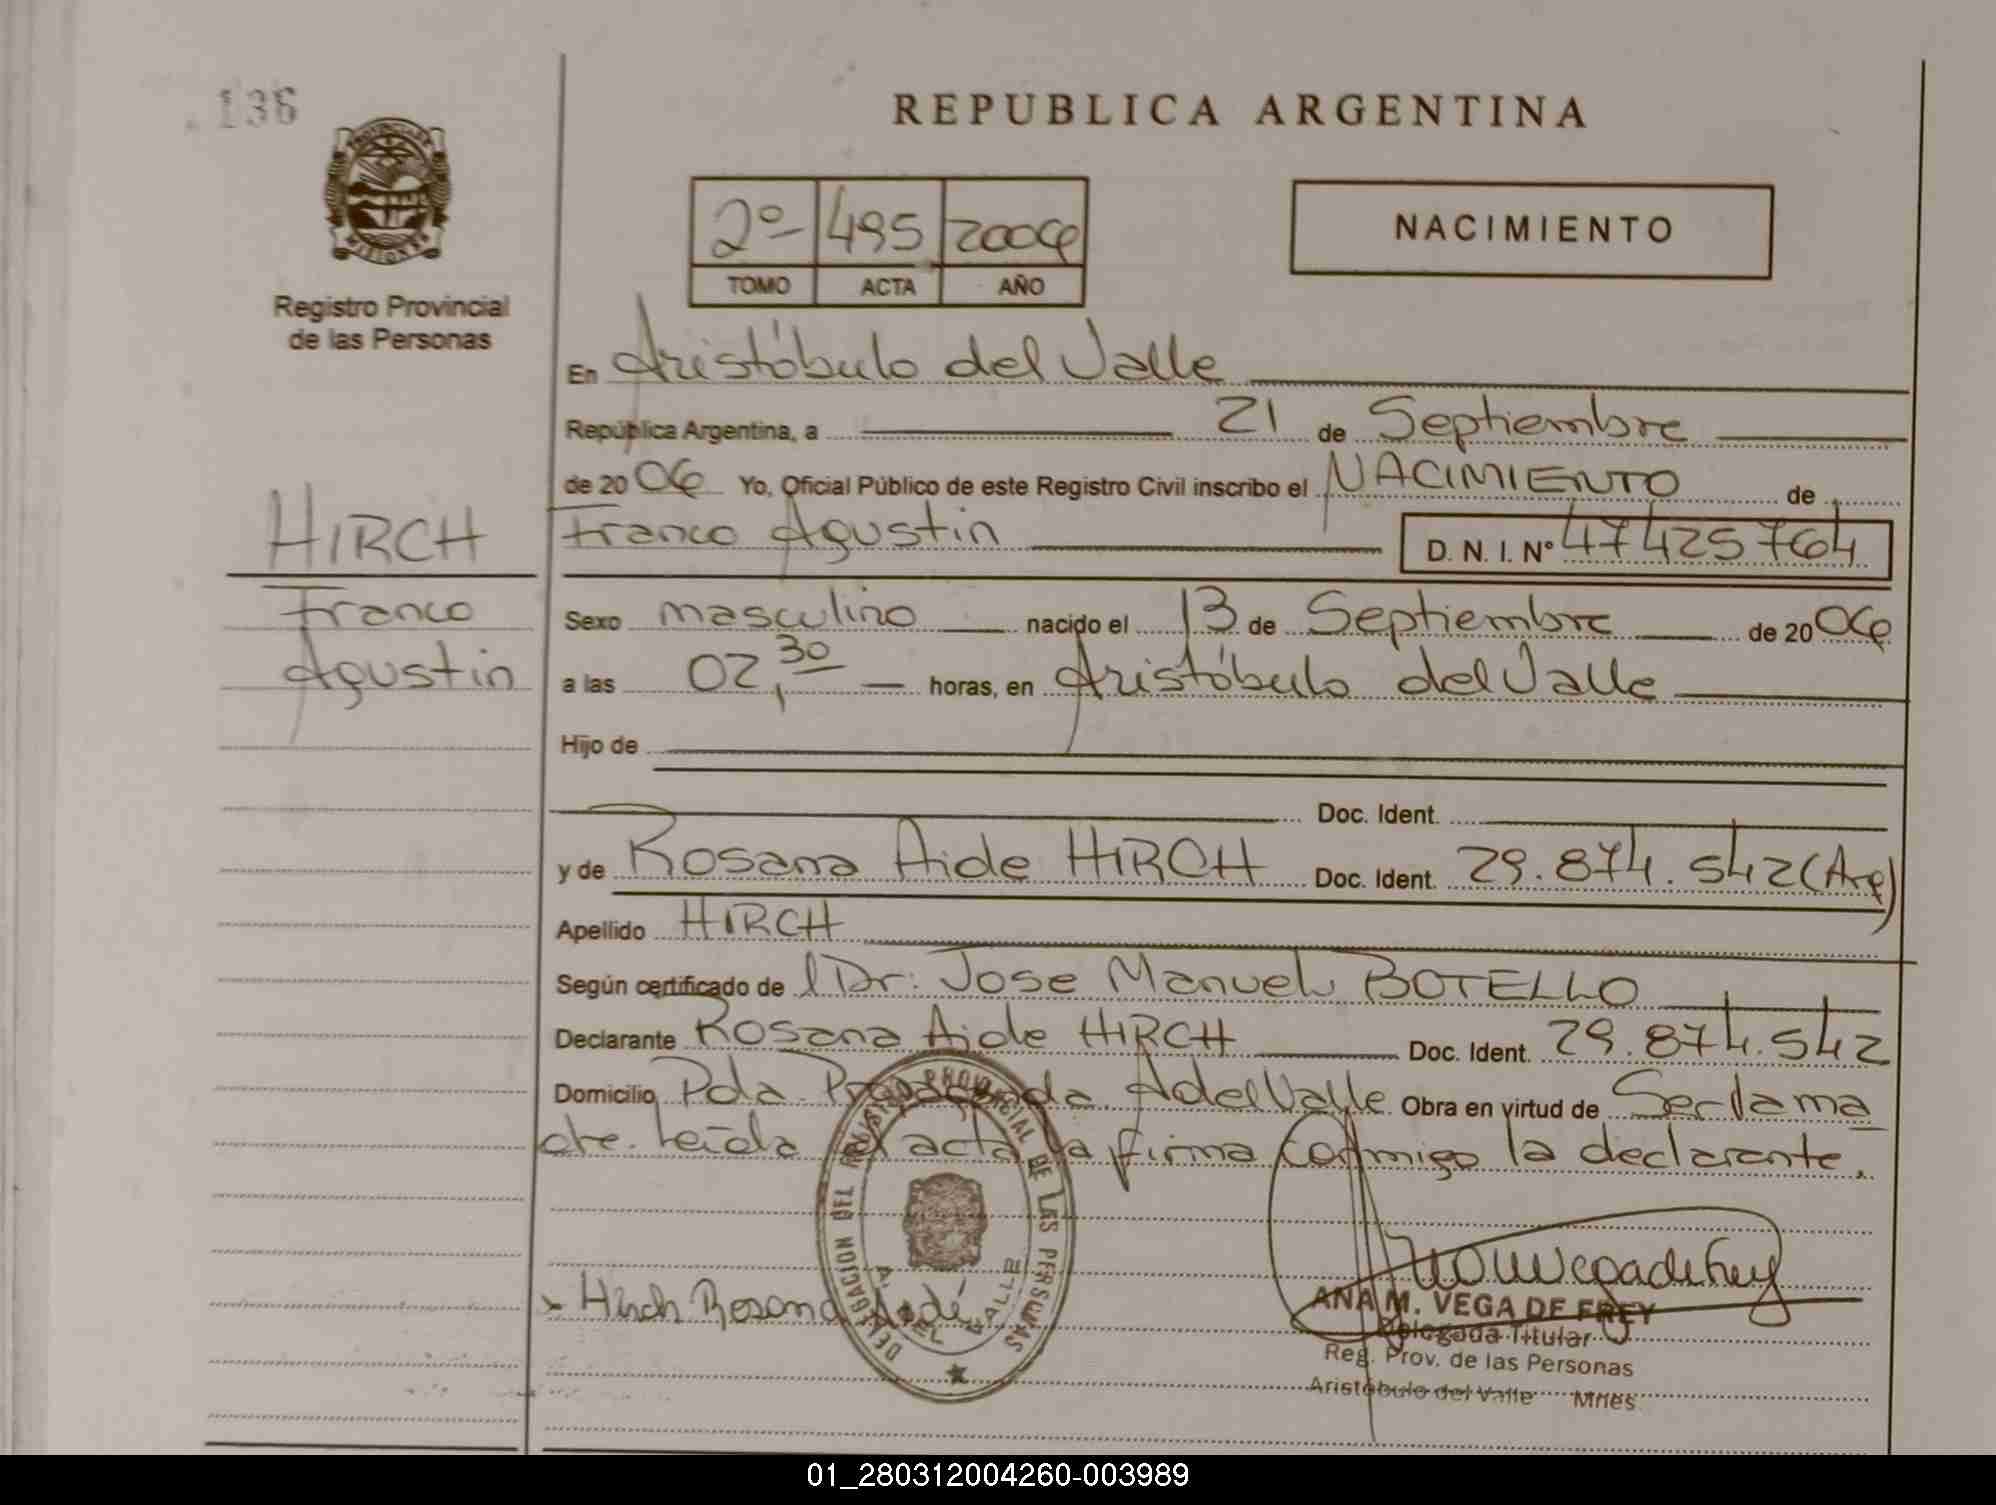 136
REPUBLICA ARGENTINA
PROVINCIA DE
MISIONES
Registro Provincial
de las Personas
2º 495 2006
TOMO ACTA AÑO
NACIMIENTO
En Aristóbulo del Valle
República Argentina, a 21 de Septiembre
de 2006 Yo, Oficial Público de este Registro Civil inscribo el NACIMIENTO de
HIRCH
Franco Agustin D. N. I. Nº 47425764
Franco
Sexo masculino nacido el 13 de Septiembre de 2006
Agustin
a las 02,30 horas, en Aristóbulo del Valle
Hijo de
Doc. Ident.
y de Rosana Aide HIRCH Doc. Ident. 29.874.542 (Arg)
Apellido HIRCH
Según certificado de l Dr: Jose Manuel BOTELLO
Declarante Rosana Aide HIRCH Doc. Ident. 29.874.542
Domicilio Pda. Propaganda. AdelValle Obra en virtud de Ser la ma
dre. Leída el acta la firma conmigo la declarante.
DELEGACION DEL REGISTRO PROVINCIAL DE LAS PERSONAS
A. DEL VALLE
x Hirch Rosana Aidé
ANA M. VEGA DE FREY
Delegada Titular
Reg. Prov. de las Personas
Aristóbulo del Valle Mnes.
01_280312004260-003989